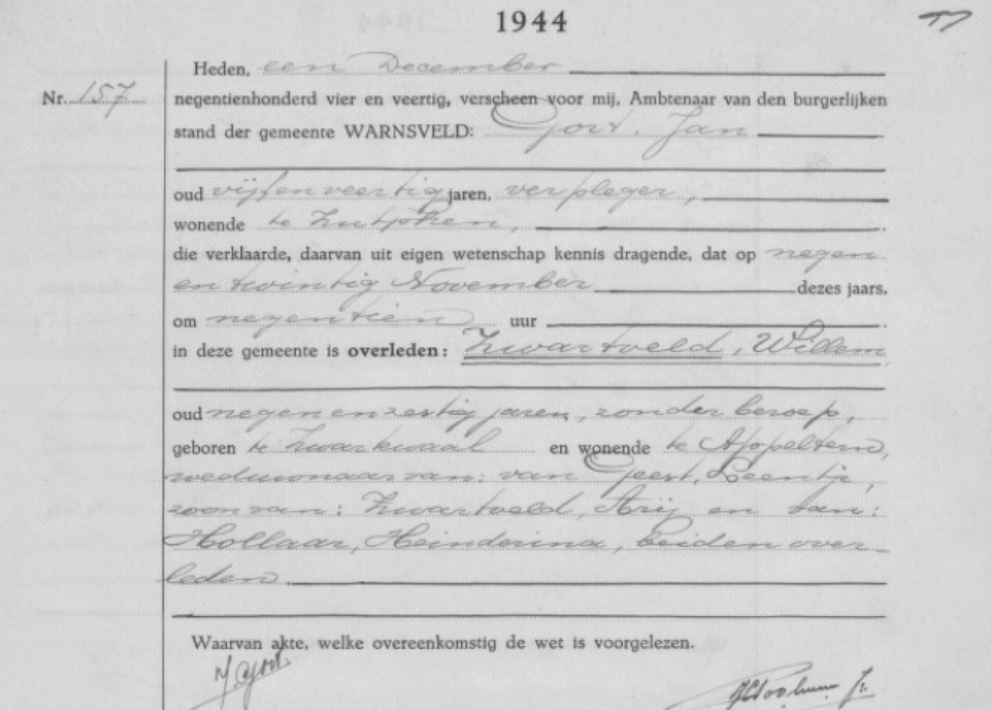 1944
Heden, een December
Nr. 157 negentienhonderd vier en veertig, verscheen voor mij, Ambtenaar van den burgerlijken
stand der gemeente WARNSVELD: Gort, Jan
oud vijfenveertig jaren, verpleger,
wonende te Zutphen,
die verklaarde, daarvan uit eigen wetenschap kennis dragende, dat op negen
en twintig November dezes jaars,
om negentien uur
in deze gemeente is overleden: Zwartveld, Willem
oud negenenzestig jaren, zonder beroep,
geboren te Zwartewaal en wonende te Appeltern,
weduwnaar van: van Geest, Leentje,
zoon van: Zwartveld, Arij en van:
Hollaar, Heinderina, beiden over
leden.
Waarvan akte, welke overeenkomstig de wet is voorgelezen.
J. Gort.